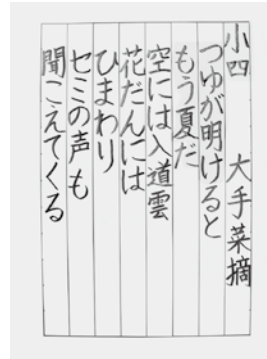 小四　大手菜摘
つゆが明けると
もう夏だ
空には入道雲
花だんには
ひまわり
セミの声も
聞こえてくる